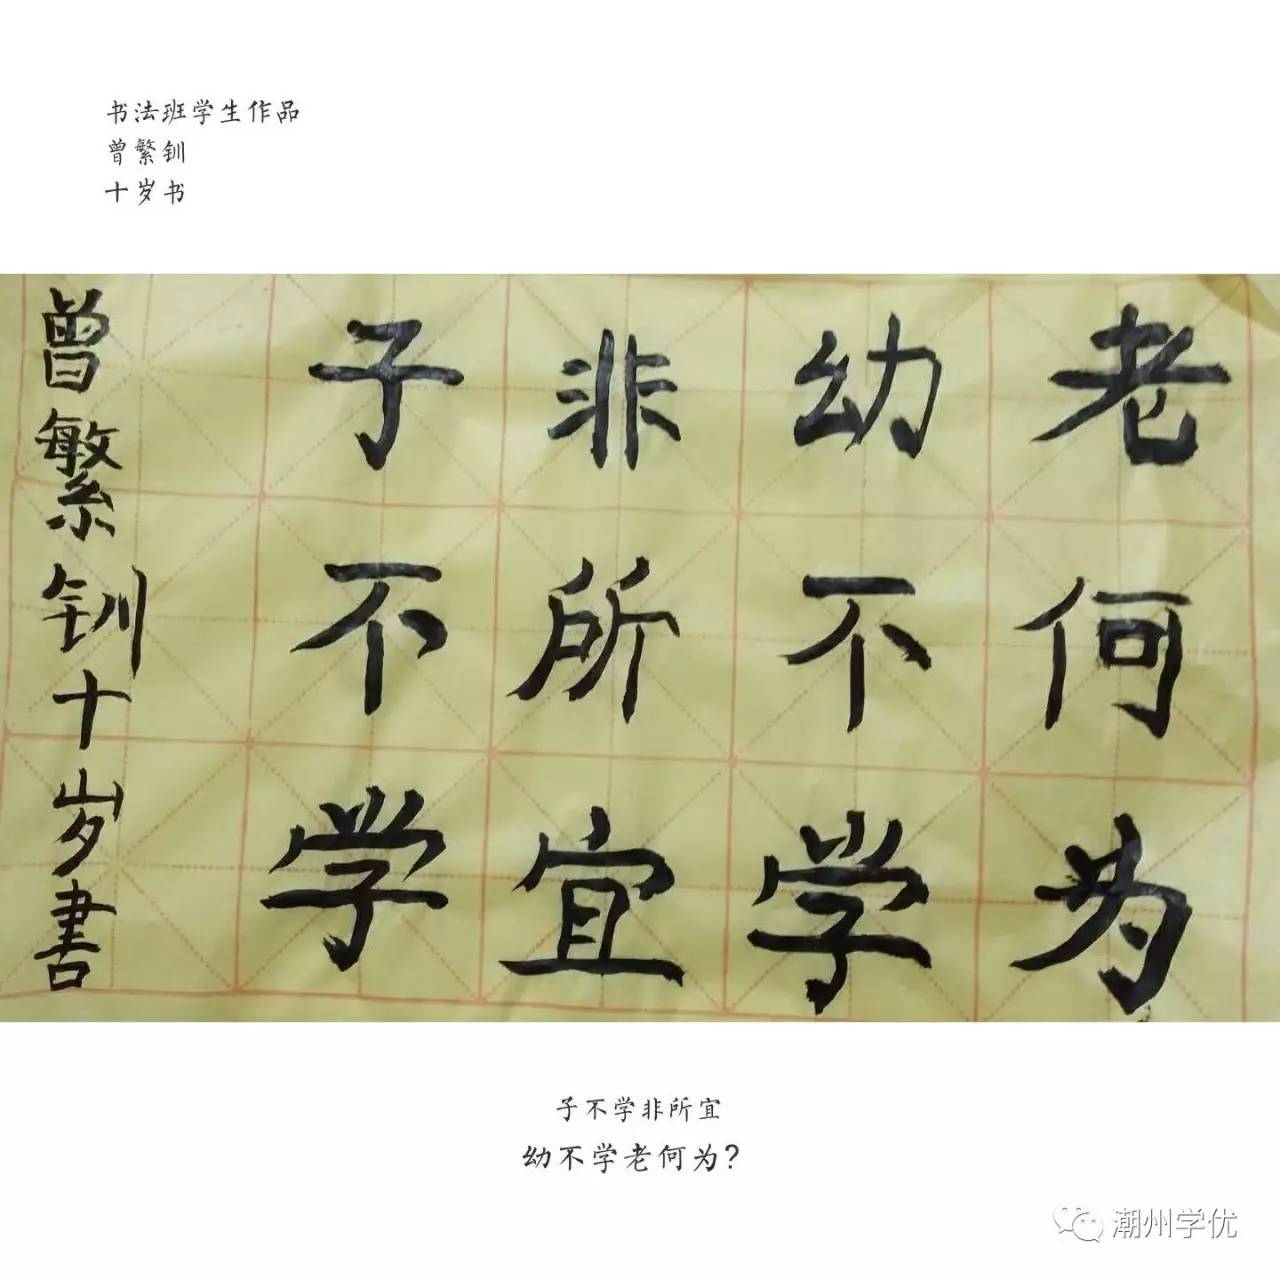 书法班学生作品
曾繁钏
十岁书
曾繁钏十岁書
子不学
非所宜
幼不学
老何为
子不学非所宜
幼不学老何为?
潮州学优